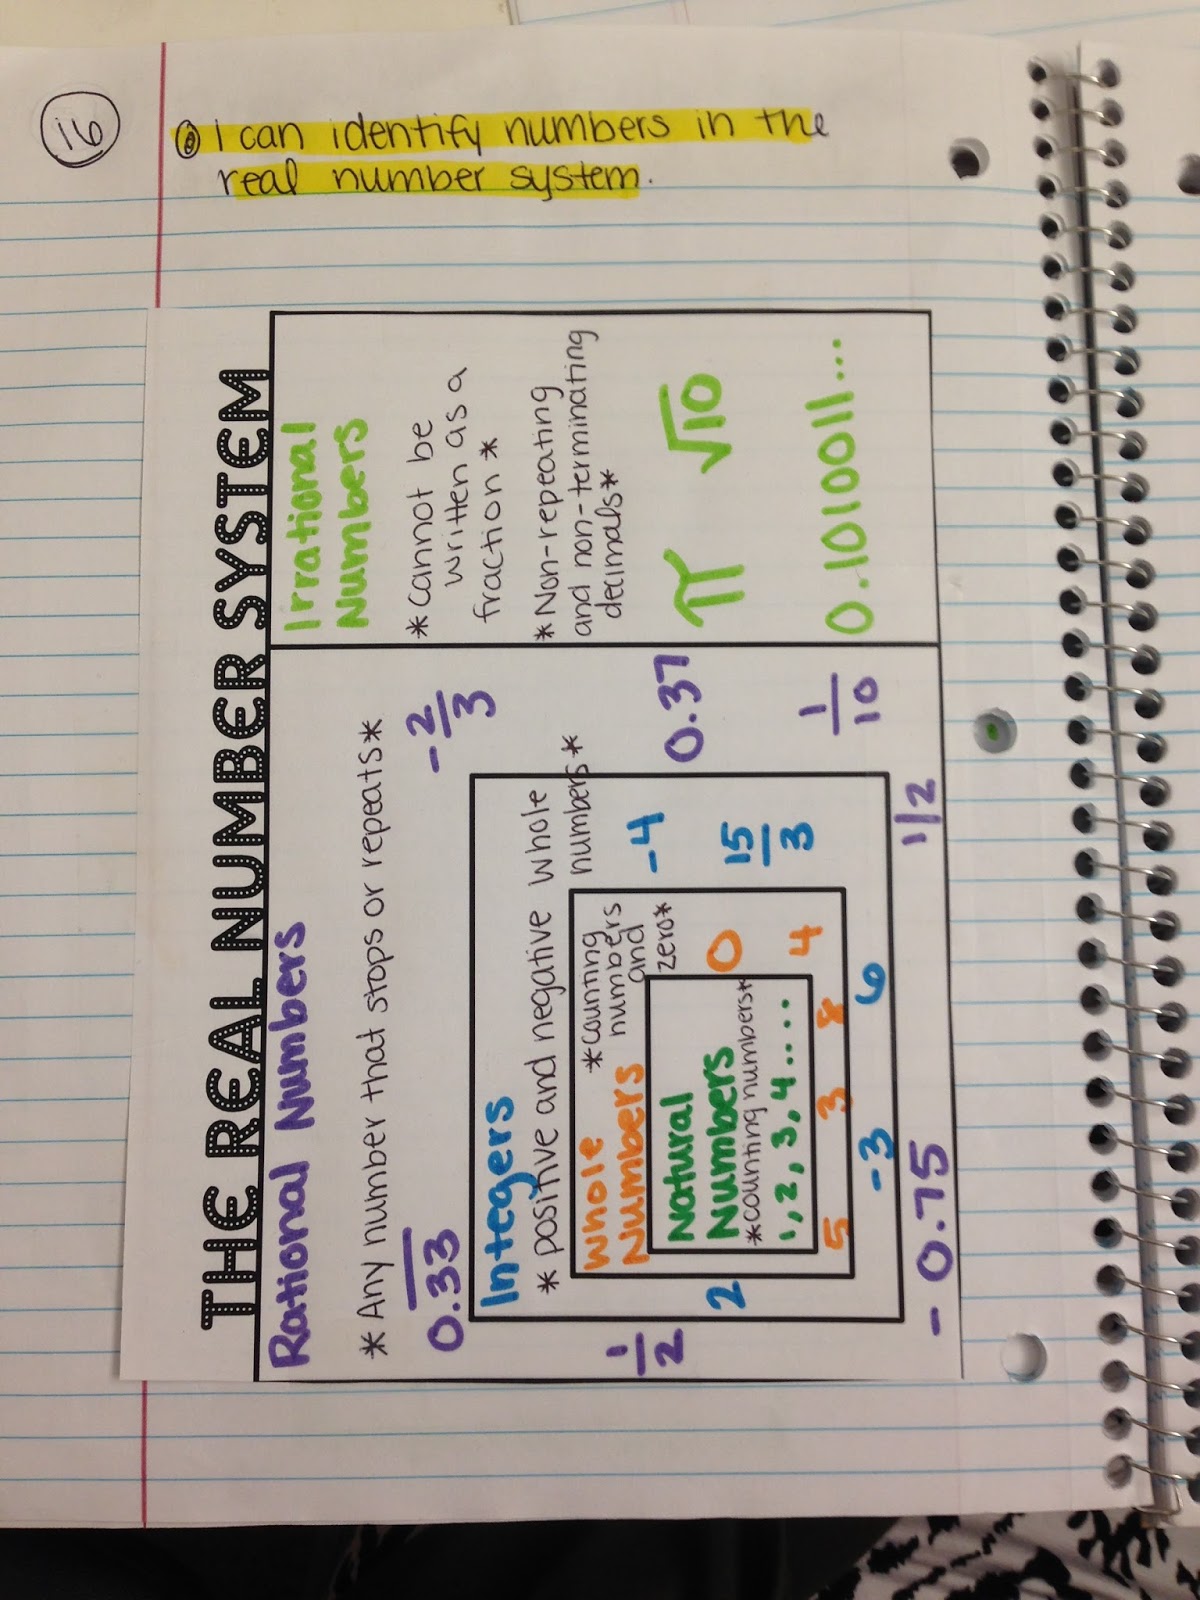 16
I can identify numbers in the
real number system.
THE REAL NUMBER SYSTEM
Rational Numbers
* Any number that stops or repeats *
0.33
-2/3
Integers
* positive and negative whole
numbers *
Whole
Numbers
* counting
numbers
and
zero *
Natural
Numbers
* counting numbers *
1, 2, 3, 4....
0
4
5 3 8
2
-4
15/3
-3 6
1/2
0.37
1/10
-0.75 1/2
Irrational
Numbers
* cannot be
written as a
fraction *
* Non-repeating
and non-terminating
decimals *
π √10
0.1010011...